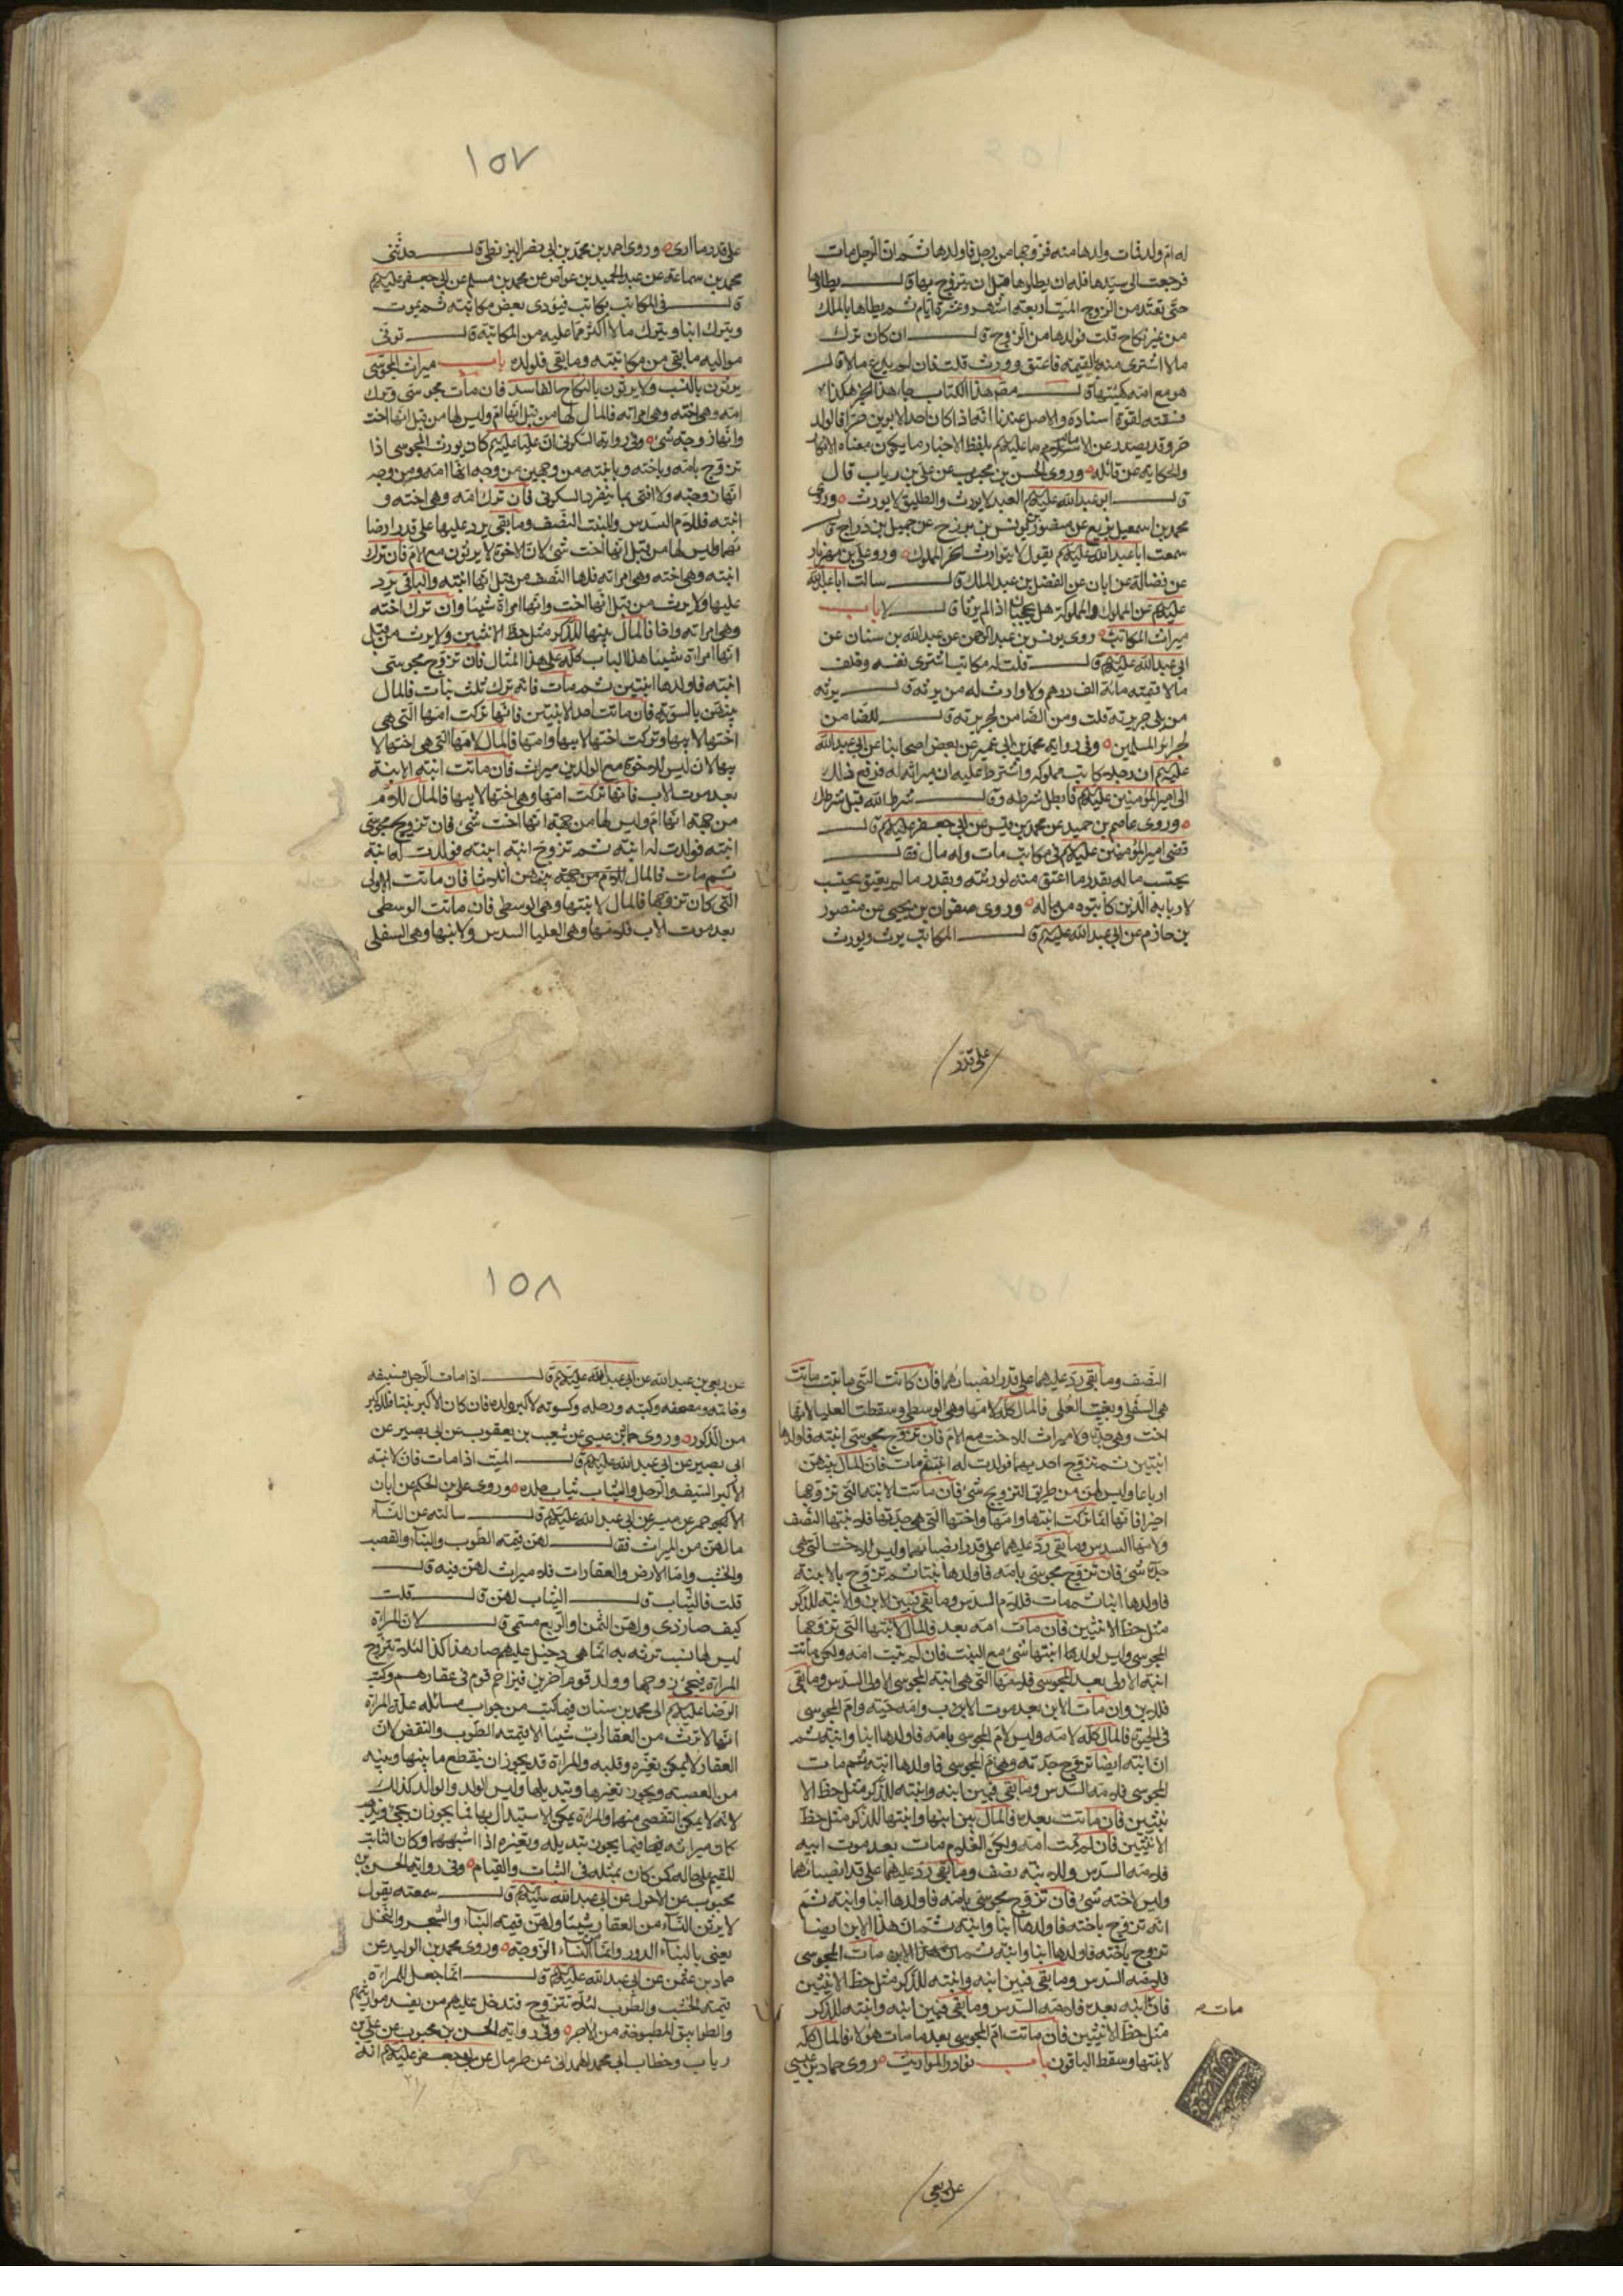 له ام ولد فمات ولدها منه فزوجها من رجل فاولدها ثم ان الرجل مات
فرجعت الى سيدها فله ان يطاوها قبل ان يتزوج بها قال يطاوها
حتى تعتد من الزوج الميت اربعة اشهر وعشرة ايام ثم يطاها بالملك
من غير نكاح قلت فولدها من الزوج قال ان كان ترك
مالا اشترى منه بالقيمة فاعتق وورث قلت فان لم يدع مالا قال
هو مع امه كهيئتها قال مصنف هذا الكتاب جاء هذا الخبر هكذا
فسقته لقوة اسناده والاصل عندنا انه اذا كان احد الابوين حرا فالولد
حر وقد يصدر عن الامام عليه السلم بلفظ الاخبار ما يكون معناه الانكار
والحكاية عن قائله وروى الحسن بن محبوب عن علي بن رياب قال
قال ابو عبد الله عليه السلم العبد لا يورث والطليق لا يورث وروى
محمد بن اسمعيل بن بزيع عن منصور بن يونس بن بزرج عن جميل بن دراج قال
سمعت ابا عبد الله عليه السلم يقول لا يتوارث الحر المملوك وروى علي بن مهزيار
عن فضالة عن ابان عن الفضل بن عبد الملك قال سالت ابا عبد الله
عليه السلم عن المملوك والمملوكة هل يحجبان اذا لم يرثا قال لا باب
ميراث المكاتب روى يونس بن عبد الرحمن عن عبد الله بن سنان عن
ابي عبد الله عليه السلم قال قلت له مكاتب اشترى نفسه وخلف
مالا قيمته مائة الف درهم ولا وارث له من يرثه قال يرثه
من يلي جريرته قلت ومن الضامن لجريرته قال الضامن
لجرائر المسلمين وفي رواية محمد بن ابي عمير عن بعض اصحابنا عن ابي عبد الله
عليه السلم ان رجلا كاتب مملوكه واشترط عليه ان ميراثه له فرفع ذلك
الى امير المؤمنين عليه السلم فابطل شرطه وقال شرط الله قبل شرطك
وروى عاصم بن حميد عن محمد بن قيس عن ابي جعفر عليه السلم قال
قضى امير المؤمنين عليه السلم في مكاتب مات وله مال فقال
يحتسب ماله بقدر ما اعتق منه لورثته وبقدر ما لم يعتق يحتسب
لاربابه الذين كاتبوه من ماله وروى صفوان بن يحيى عن منصور
بن حازم عن ابي عبد الله عليه السلم قال المكاتب يرث ويورث
على قدر
١٥٧
على قدر ما ادى وروى احمد بن محمد بن ابي نصر البزنطي قال حدثني
محمد بن سماعة عن عبد الحميد بن عواض عن محمد بن مسلم عن ابي جعفر عليه السلم
قال في المكاتب يكاتب فيؤدى بعض مكاتبته ثم يموت
ويترك ابنا ويترك مالا اكثر مما عليه من المكاتبة قال توفى
مواليه ما بقي من مكاتبته وما بقي فلولده باب ميراث المجوسي
يرثون بالنسب ولا يرثون بالنكاح الفاسد فان مات مجوسي وترك
امه وهي اخته وهي امراته فالمال لها من قبل انها ام وليس لها من قبل انها اخت
وانها زوجة شئ وفي رواية السكوني ان عليا عليه السلم كان يورث المجوسي اذا
تزوج بامه وباخته وبابنته من وجهين من وجه انها امه ومن وجه
انها زوجته ولا افتى بما ينفرد السكوني فان ترك امه وهي اخته و
ابنته فللام السدس والبنت النصف وما بقي يرد عليها على قدر انصبا
ئهما وليس لها من قبل انها اخت شئ لان الاخوة لا يرثون مع الام فان ترك
ابنته وهي اخته وهي امراته فلها النصف من قبل انها ابنته والباقي يرد
عليها ولا يرث من قبل انها اخت وانها امراة شيئا وان ترك اخته
وهي امراته واخا فالمال بينهما للذكر مثل حظ الانثيين ولا يرث من قبل
انها امراة شيئا هذا الباب كله على هذا المثال فان تزوج مجوسي
ابنته فاولدها ابنتين ثم مات فانه ترك ثلث بنات فالمال
بينهن بالسوية فان ماتت احد الابنتين فانها تركت امها التي هي
اختها لابيها وتركت اختها لابيها وامها فالمال لامها التي هي اختها لا
بيها لان ليس للاخوة مع الوالدين ميراث فان ماتت ابنة الابنة
بعد موت الاب فانها تركت امها وهي اختها لابيها فالمال للام
من جهة انها ام وليس لها من جهة انها اخت شئ فان تزوج مجوسي
ابنته فولدت له ابنة ثم تزوج ابنة ابنته فولدت له ابنة
ثم مات فالمال بينهن اثلاثا فان ماتت الاولى
التي كان تزوجها فالمال لابنتها وهي الوسطى فان ماتت الوسطى
بعد موت الاب فلامها وهي العليا السدس ولابنتها وهي السفلى
النصف وما بقي رد عليهما على قدر انصبائهما فان كانت التي ماتت
هي السفلى وبقيت العليا فالمال كله لامها وهي الوسطى وسقطت العليا لانها
اخت وهي جدة ولا ميراث للاخت مع الام فان تزوج مجوسي ابنته فاولدها
ابنتين ثم تزوج احديهما فولدت له ابنة ثم مات فان المال بينهن
ارباعا وليس لهن من طريق التزويج شئ فان ماتت الابنة التي تزوجها
اخيرا فانها انما تركت ابنتها وامها واختها التي هي جدتها فلابنتها النصف
ولامها السدس وما بقي رد عليهما على قدر انصبائهما وليس للاخت التي هي
جدة شئ فان تزوج مجوسي بامه فاولدها بنتا ثم تزوج بالابنة
فاولدها ابنا ثم مات فللام السدس وما بقي فبين الابن والابنة للذكر
مثل حظ الانثيين فان ماتت امه بعده فالمال لابنتها التي تزوجها
المجوسي وليس لولد ابنتها شئ مع البنت فان لم تمت امه ولكن ماتت
ابنته الاولى بعد المجوسي فلامها التي هي ابنة المجوسي الاولى السدس وما بقي
فللابن وان مات الابن بعد موت الاب وامه حية وام المجوسي
في الحيوة فالمال كله لامه وليس لام المجوسي بامه فاولدها ابنا وابنة ثم
ان ابنه ايضا تزوج جدته وهي ام المجوسي فاولدها ابنة ثم مات
المجوسي فلامه السدس وما بقي فبين ابنه وابنته للذكر مثل حظ الا
نثيين فان ماتت بعده فالمال بين ابنها وابنتها للذكر مثل حظ
الانثيين فان لم تمت امه ولكن الغلام مات بعد موت ابيه
فلامه السدس وللابنة نصف وما بقي رد عليهما على قدر انصبائهما
وليس لاخته شئ فان تزوج مجوسي بامه فاولدها ابنا وابنة ثم
انه تزوج باخته فاولدها ابنا وابنة ثم ان هذا الابن ايضا
تزوج باخته فاولدها ابنا وابنة ثم مات المجوسي
فلامه السدس وما بقي فبين ابنه وابنته للذكر مثل حظ الانثيين
فان ابنه بعده فلامه السدس وما بقي فبين ابنه وابنته للذكر
مات
مثل حظ الانثيين فان ماتت ام المجوسي بعد ما مات هؤلاء فالمال كله
لابنتها وسقط الباقون باب نوادر المواريث روى حماد بن عيسى
عن ربعي
١٥٨
عن ربعي بن عبد الله عن ابي عبد الله عليه السلم قال اذا مات الرجل فسيفه
وخاتمه ومصحفه وكتبه ورحله وكسوته لاكبر ولده فان كان الاكبر بنتا فللاكبر
من الذكور وروى حماد بن عيسى عن شعيب بن يعقوب عن ابي بصير عن
ابي بصير عن ابي عبد الله عليه السلم قال الميت اذا مات فان لابنه
الاكبر السيف والرحل والثياب ثياب جلده وروى علي بن الحكم عن ابان
الاحمر عن ميسر عن ابي عبد الله عليه السلم قال سالته عن النساء
ما لهن من الميراث فقال لهن قيمة الطوب والبناء والقصب
والخشب واما الارض والعقارات فلا ميراث لهن فيه قال
قلت فالثياب قال الثياب لهن قال قلت
كيف صار ذي ولهن الثمن والربع مسمى قال لان المراة
ليس لها نسب ترث به انما هي دخيل عليهم صار هذا كذا لئلا تتزوج
المراة فيجئ زوجها وولد قوم اخرين فيزاحم قوم في عقارهم وكتب
الرضا عليه السلم الى محمد بن سنان فيما كتب من جواب مسائله علة المراة
انها لا ترث من العقارات شيئا الا قيمة الطوب والنقض لان
العقار لا يمكن تغييره وقلبه والمراة قد يجوز ان ينقطع ما بينها وبينه
من العصمة ويجوز تغيرها وتبديلها وليس الولد والوالد كذلك
لانه لا يمكن التفصي منهما والمراة يمكن الاستبدال بها فما يجوز ان يجئ ويذهب
كان ميراثه فيما يجوز تبديله وتغيره اذا اشبههما وكان الثابت
المقيم على حاله كمن كان بمثله في الثبات والقيام وفي رواية الحسن بن
محبوب عن الاحول عن ابي عبد الله عليه السلم قال سمعته يقول
لا يرثن النساء من العقار شيئا ولهن قيمة البناء والشجر والنخل
يعني بالبناء الدور وانما النساء الزوجة وروى محمد بن الوليد عن
حماد بن عثمن عن ابي عبد الله عليه السلم قال انما جعل للمراة
قيمة الخشب والطوب لئلا تتزوج فتدخل عليهم من يفسد مواريثهم
والطوابيق المطبوخة من الاجر وفي رواية الحسن بن محبوب عن علي بن
رياب وخطاب ابي محمد الهمداني عن طربال عن ابي جعفر عليه السلم انه